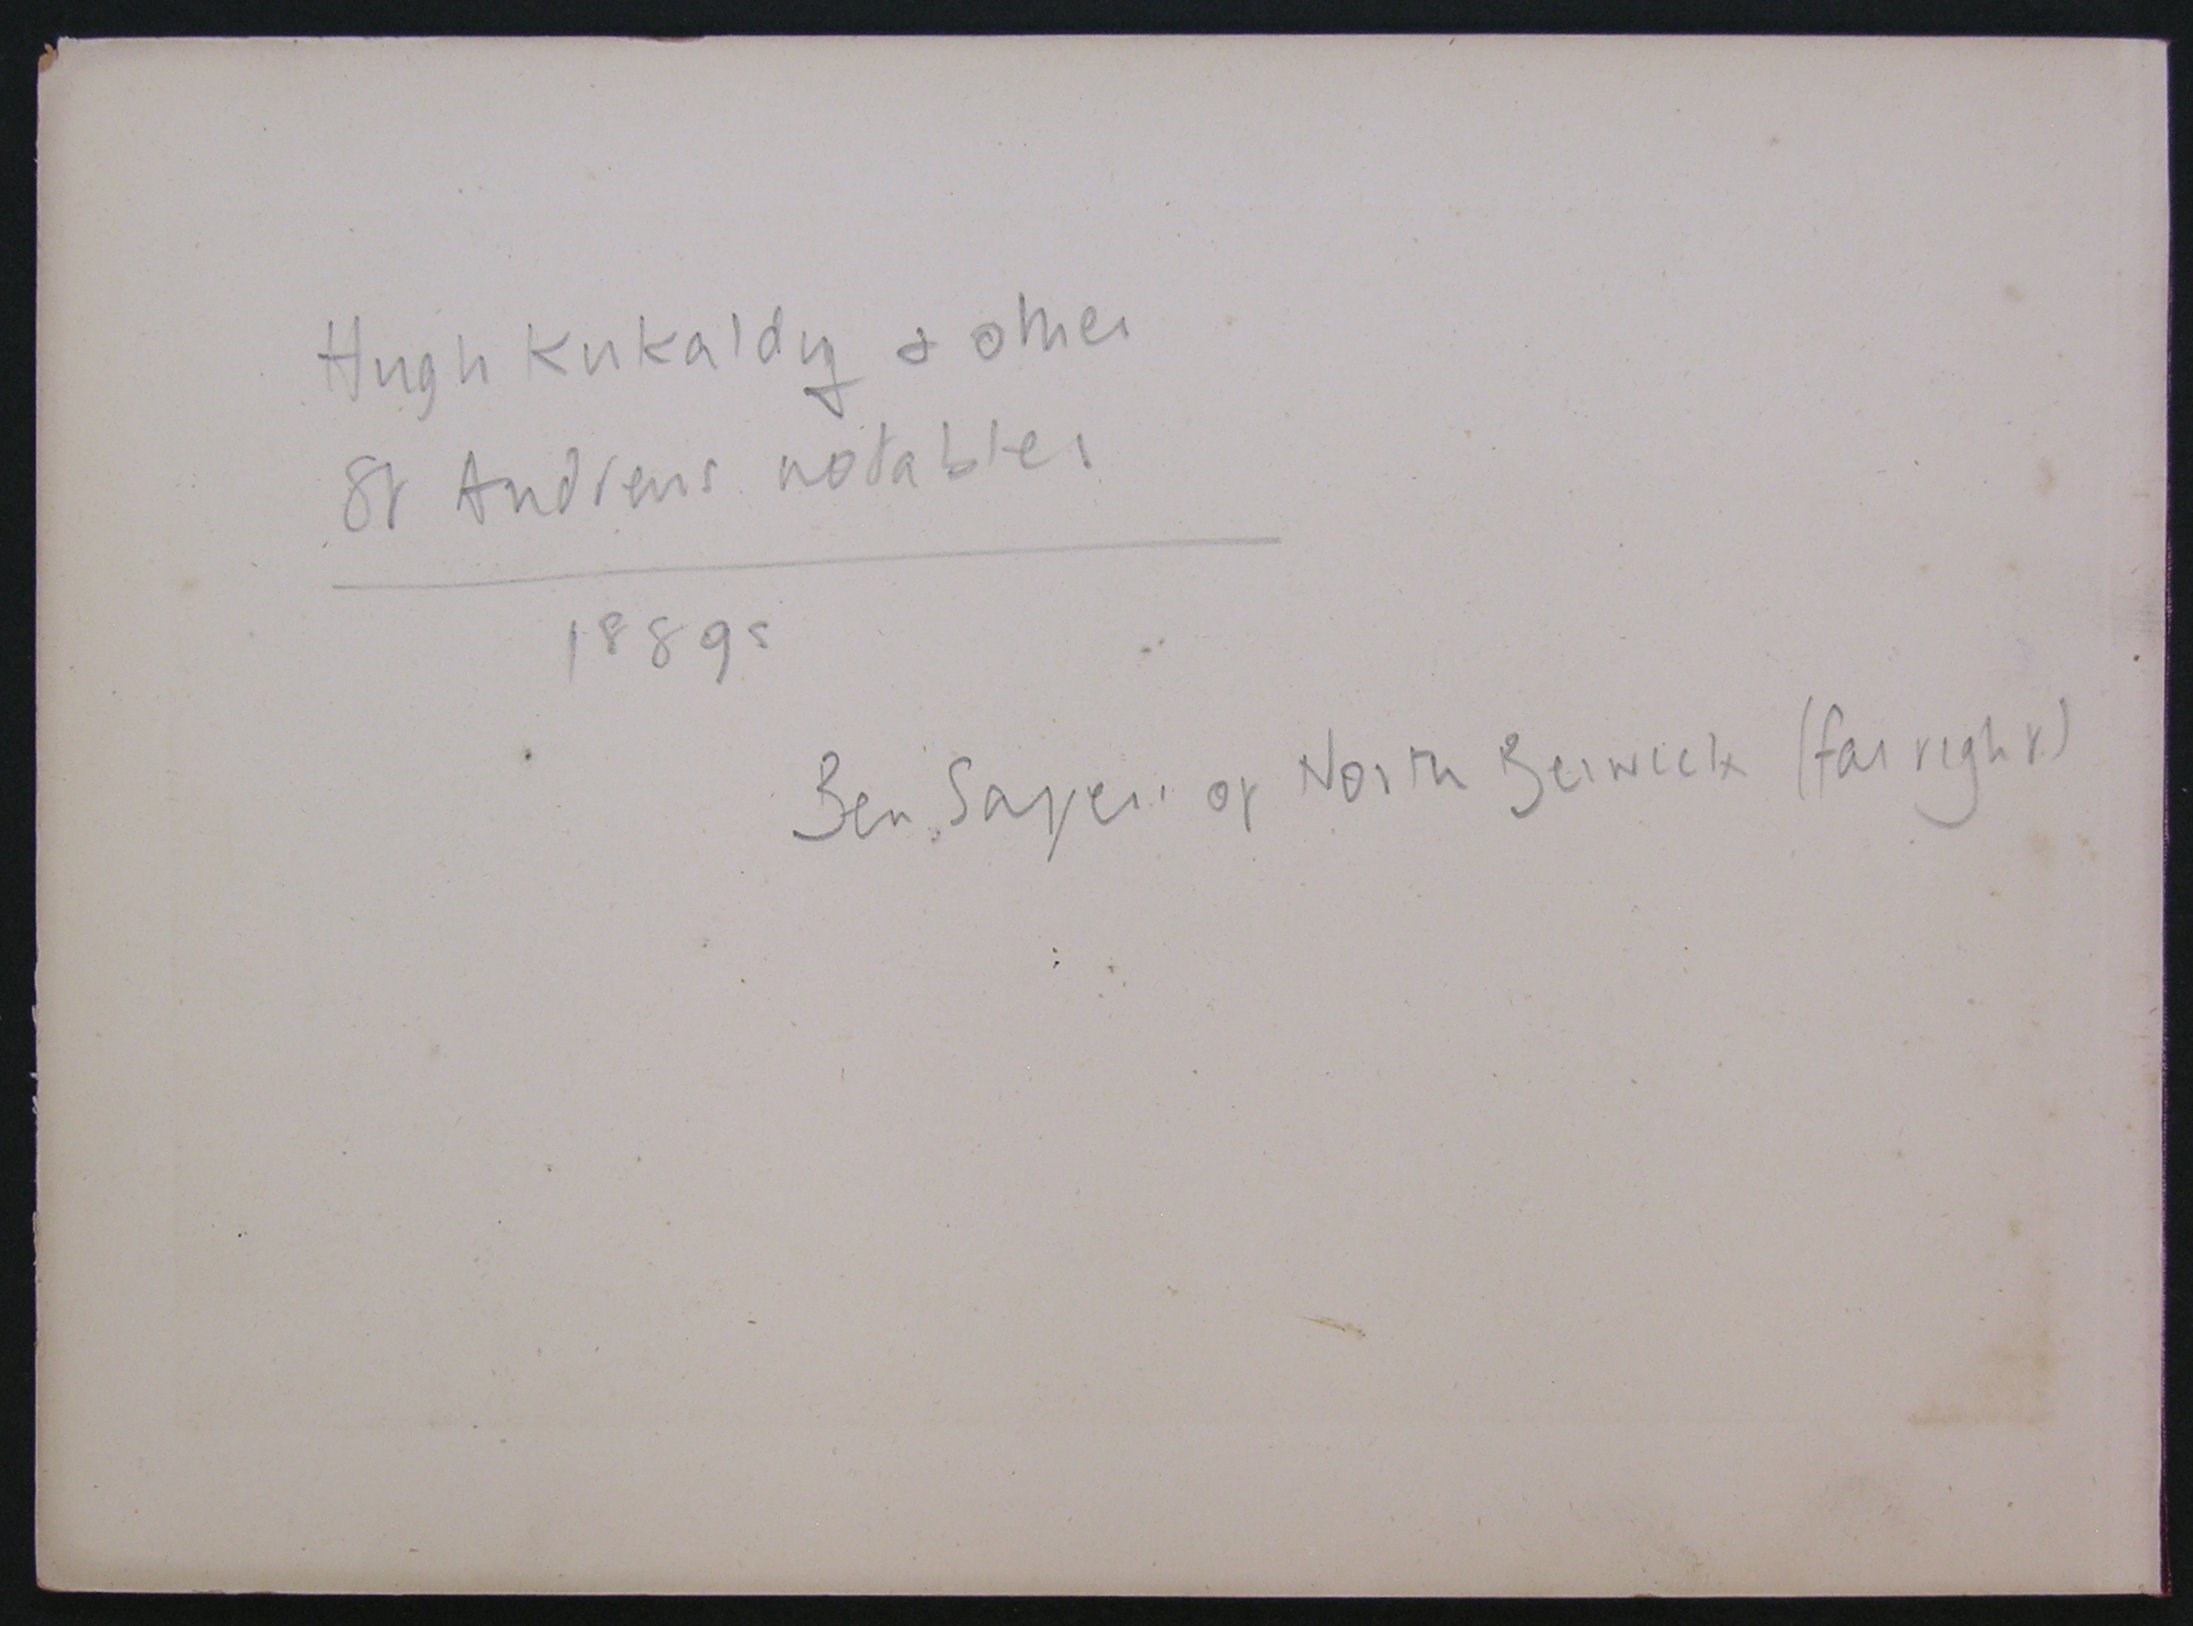 Hugh Kirkaldy & other
St Andrews notables
1889s
Ben Sayers of North Berwick (far right)